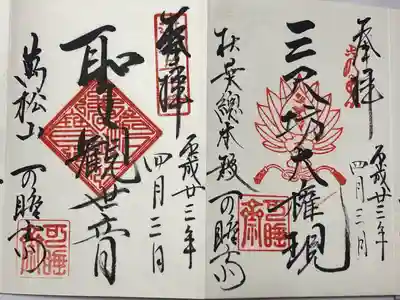 奉拝
三尺坊大権現
秋葉總本殿
可睡斎
平成廿三年
四月二日
可睡斎
奉拝
聖観世音
萬松山
可睡斎
平成廿三年
四月二日
可睡斎